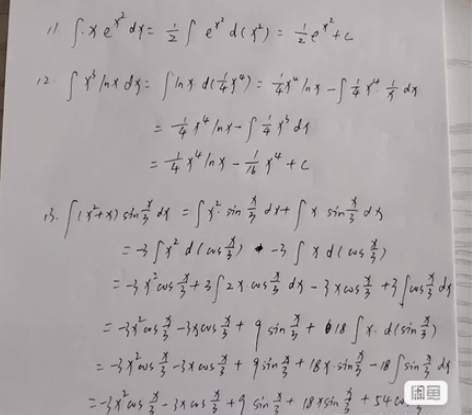 11. ∫ x e^{x²} dx = 1/2 ∫ e^{x²} d(x²) = 1/2 e^{x²} + c
12. ∫ x³ ln x dx = ∫ ln x d(1/4 x⁴) = 1/4 x⁴ ln x - ∫ 1/4 x⁴ 1/x dx
= 1/4 x⁴ ln x - ∫ 1/4 x³ dx
= 1/4 x⁴ ln x - 1/16 x⁴ + c
13. ∫ (x²+x) sin x/3 dx = ∫ x² · sin x/3 dx + ∫ x sin x/3 dx
= -3 ∫ x² d(cos x/3) - 3 ∫ x d(cos x/3)
= -3 x² cos x/3 + 3 ∫ 2x · cos x/3 dx - 3x cos x/3 + 3 ∫ cos x/3 dx
= -3x² cos x/3 - 3x cos x/3 + 9 sin x/3 + 18 ∫ x · d(sin x/3)
= -3x² cos x/3 - 3x cos x/3 + 9 sin x/3 + 18x · sin x/3 - 18 ∫ sin x/3 dx
= -3x² cos x/3 - 3x cos x/3 + 9 sin x/3 + 18x sin x/3 + 54 cos
闲鱼